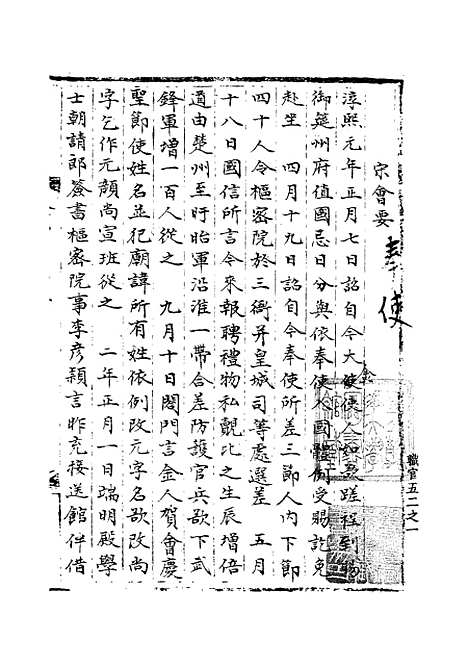 宋會要
奉使
淳熙元年正月七日詔自今大使使人如遇蹉程到錫
御筵州府值國忌日分與依奉使人國體例受賜訖免
赴坐　四月十九日詔自今奉使所差三節人內下節
四十人令樞密院於三衙并皇城司等處選差　五月
十八日國信所言今來報聘禮物私覿比之生辰增倍
道由楚州至盱眙軍沿淮一帶合差防護官兵欲下武
鋒軍增一百人從之　九月十日閤門言金人賀會慶
聖節使姓名並犯廟諱所有姓依例改元字名欲改尚
字乞作元顏尚宣班從之　二年正月一日端明殿學
士朝請郎簽書樞密院事李彥穎言昨充接送館伴借
職官五二之一